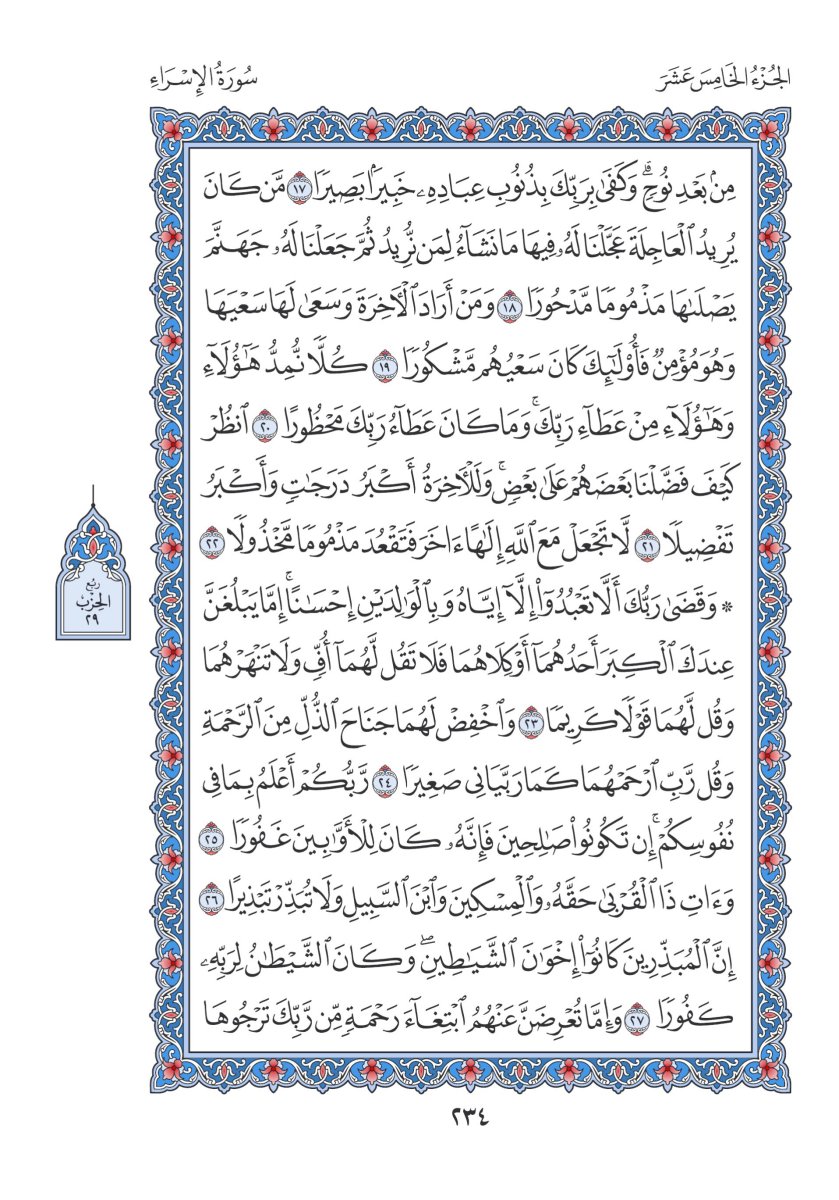 الجُزْءُ الخَامِسَ عَشَرَ
سُورَةُ الإِسْرَاءِ
مِنۢ بَعْدِ نُوحٖۗ وَكَفَىٰ بِرَبِّكَ بِذُنُوبِ عِبَادِهِۦ خَبِيرَۢا بَصِيرٗا ١٧ مَّن كَانَ
يُرِيدُ ٱلْعَاجِلَةَ عَجَّلْنَا لَهُۥ فِيهَا مَا نَشَآءُ لِمَن نُّرِيدُ ثُمَّ جَعَلْنَا لَهُۥ جَهَنَّمَ
يَصْلَىٰهَا مَذْمُومٗا مَّدْحُورٗا ١٨ وَمَنْ أَرَادَ ٱلْأٓخِرَةَ وَسَعَىٰ لَهَا سَعْيَهَا
وَهُوَ مُؤْمِنٞ فَأُوْلَٰٓئِكَ كَانَ سَعْيُهُم مَّشْكُورٗا ١٩ كُلّٗا نُّمِدُّ هَٰٓؤُلَآءِ
وَهَٰٓؤُلَآءِ مِنْ عَطَآءِ رَبِّكَۚ وَمَا كَانَ عَطَآءُ رَبِّكَ مَحْظُورًا ٢٠ ٱنظُرْ
كَيْفَ فَضَّلْنَا بَعْضَهُمْ عَلَىٰ بَعْضٖۚ وَلَلْأٓخِرَةُ أَكْبَرُ دَرَجَٰتٖ وَأَكْبَرُ
تَفْضِيلٗا ٢١ لَّا تَجْعَلْ مَعَ ٱللَّهِ إِلَٰهًا ءَاخَرَ فَتَقْعُدَ مَذْمُومٗا مَّخْذُولٗا ٢٢
۞ وَقَضَىٰ رَبُّكَ أَلَّا تَعْبُدُوٓاْ إِلَّآ إِيَّاهُ وَبِٱلْوَٰلِدَيْنِ إِحْسَٰنًاۚ إِمَّا يَبْلُغَنَّ
عِندَكَ ٱلْكِبَرَ أَحَدُهُمَآ أَوْ كِلَاهُمَا فَلَا تَقُل لَّهُمَآ أُفّٖ وَلَا تَنْهَرْهُمَا
وَقُل لَّهُمَا قَوْلٗا كَرِيمٗا ٢٣ وَٱخْفِضْ لَهُمَا جَنَاحَ ٱلذُّلِّ مِنَ ٱلرَّحْمَةِ
وَقُل رَّبِّ ٱرْحَمْهُمَا كَمَا رَبَّيَانِي صَغِيرٗا ٢٤ رَّبُّكُمْ أَعْلَمُ بِمَا فِي
نُفُوسِكُمْۚ إِن تَكُونُواْ صَٰلِحِينَ فَإِنَّهُۥ كَانَ لِلْأَوَّٰبِينَ غَفُورٗا ٢٥
وَءَاتِ ذَا ٱلْقُرْبَىٰ حَقَّهُۥ وَٱلْمِسْكِينَ وَٱبْنَ ٱلسَّبِيلِ وَلَا تُبَذِّرْ تَبْذِيرًا ٢٦
إِنَّ ٱلْمُبَذِّرِينَ كَانُوٓاْ إِخْوَٰنَ ٱلشَّيَٰطِينِۖ وَكَانَ ٱلشَّيْطَٰنُ لِرَبِّهِۦ
كَفُورٗا ٢٧ وَإِمَّا تُعْرِضَنَّ عَنْهُمُ ٱبْتِغَآءَ رَحْمَةٖ مِّن رَّبِّكَ تَرْجُوهَا
رُبُع
الحِزْبِ
٢٩
٢٣٤